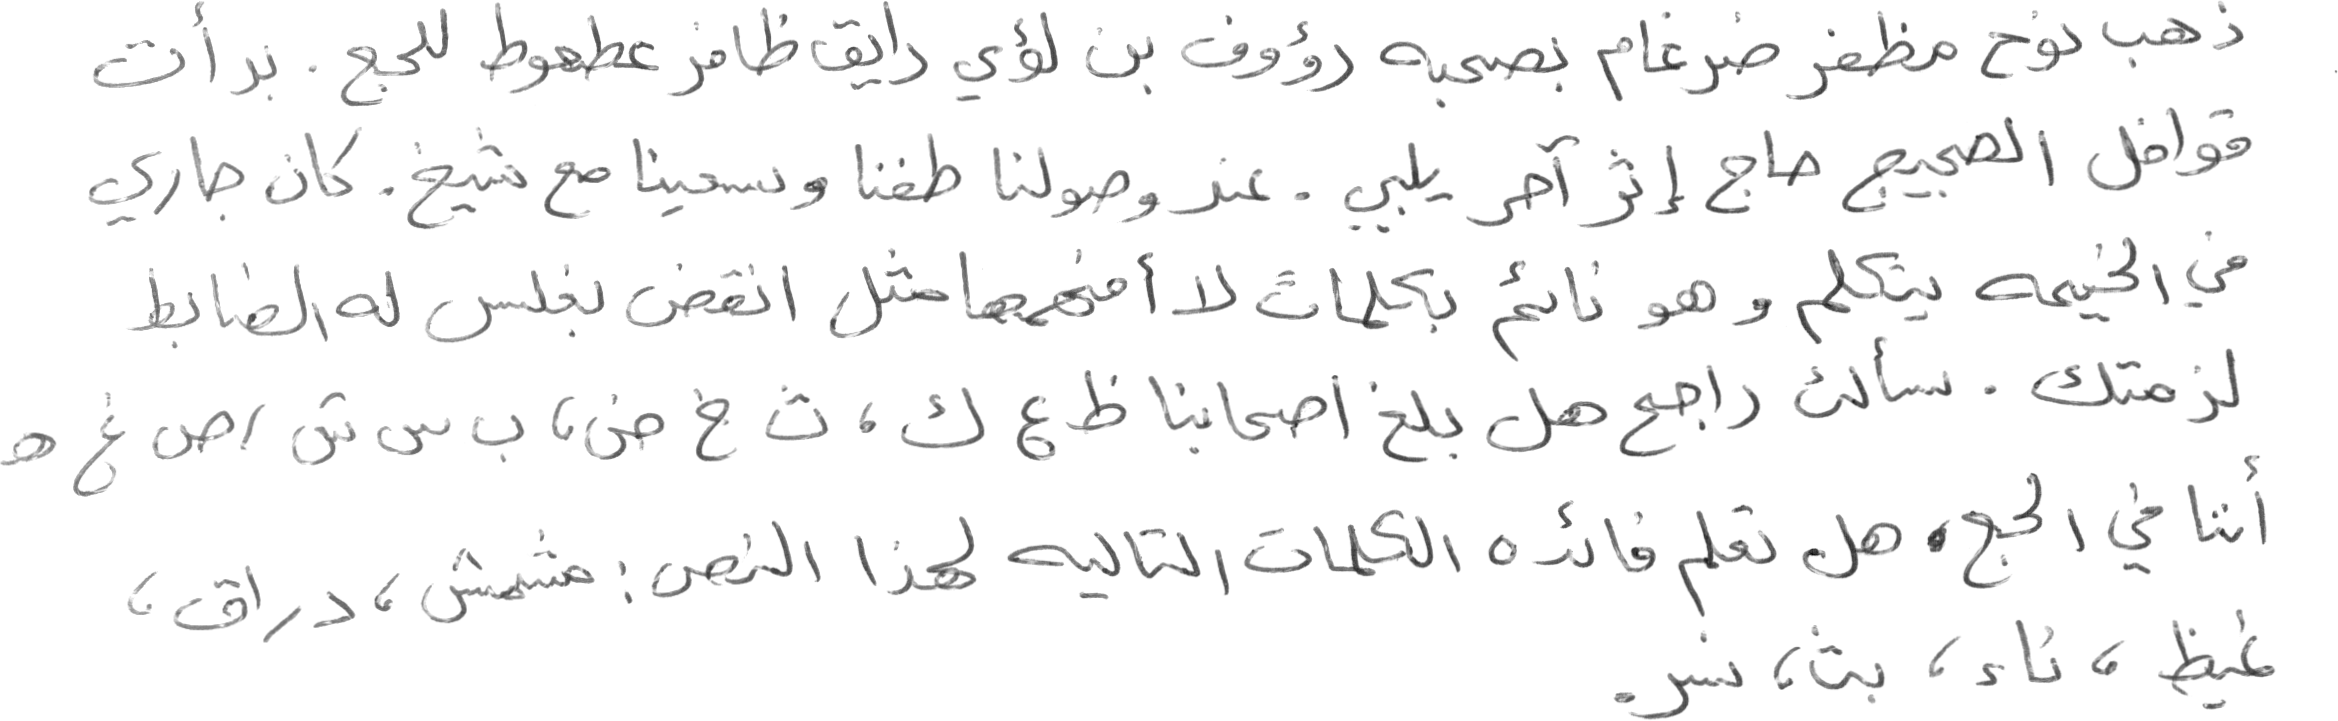 ذهب نوح مظفر ضرغام بصحبه رؤوف بن لؤي رايق ظافر عطعوط للحج . بدأت
قوافل الحجيج حاج إثر آخر يلبي . عند وصولنا طفنا وسعينا مع شيخ . كان جاري
في الخيمه يتكلم وهو نائم بكلمات لا أفهمها مثل انقض بغلس له الضابط
لزمتك . سألت راجح هل بلغ اصحابنا ظ ع ك ، ث خ ض ، ب س ش ، ص غ ه
أننا في الحج ، هل تعلم فائده الكلمات التاليه لهذا النص : مشمش ، دراق ،
غيظ ، ناء ، بث ، نسر .